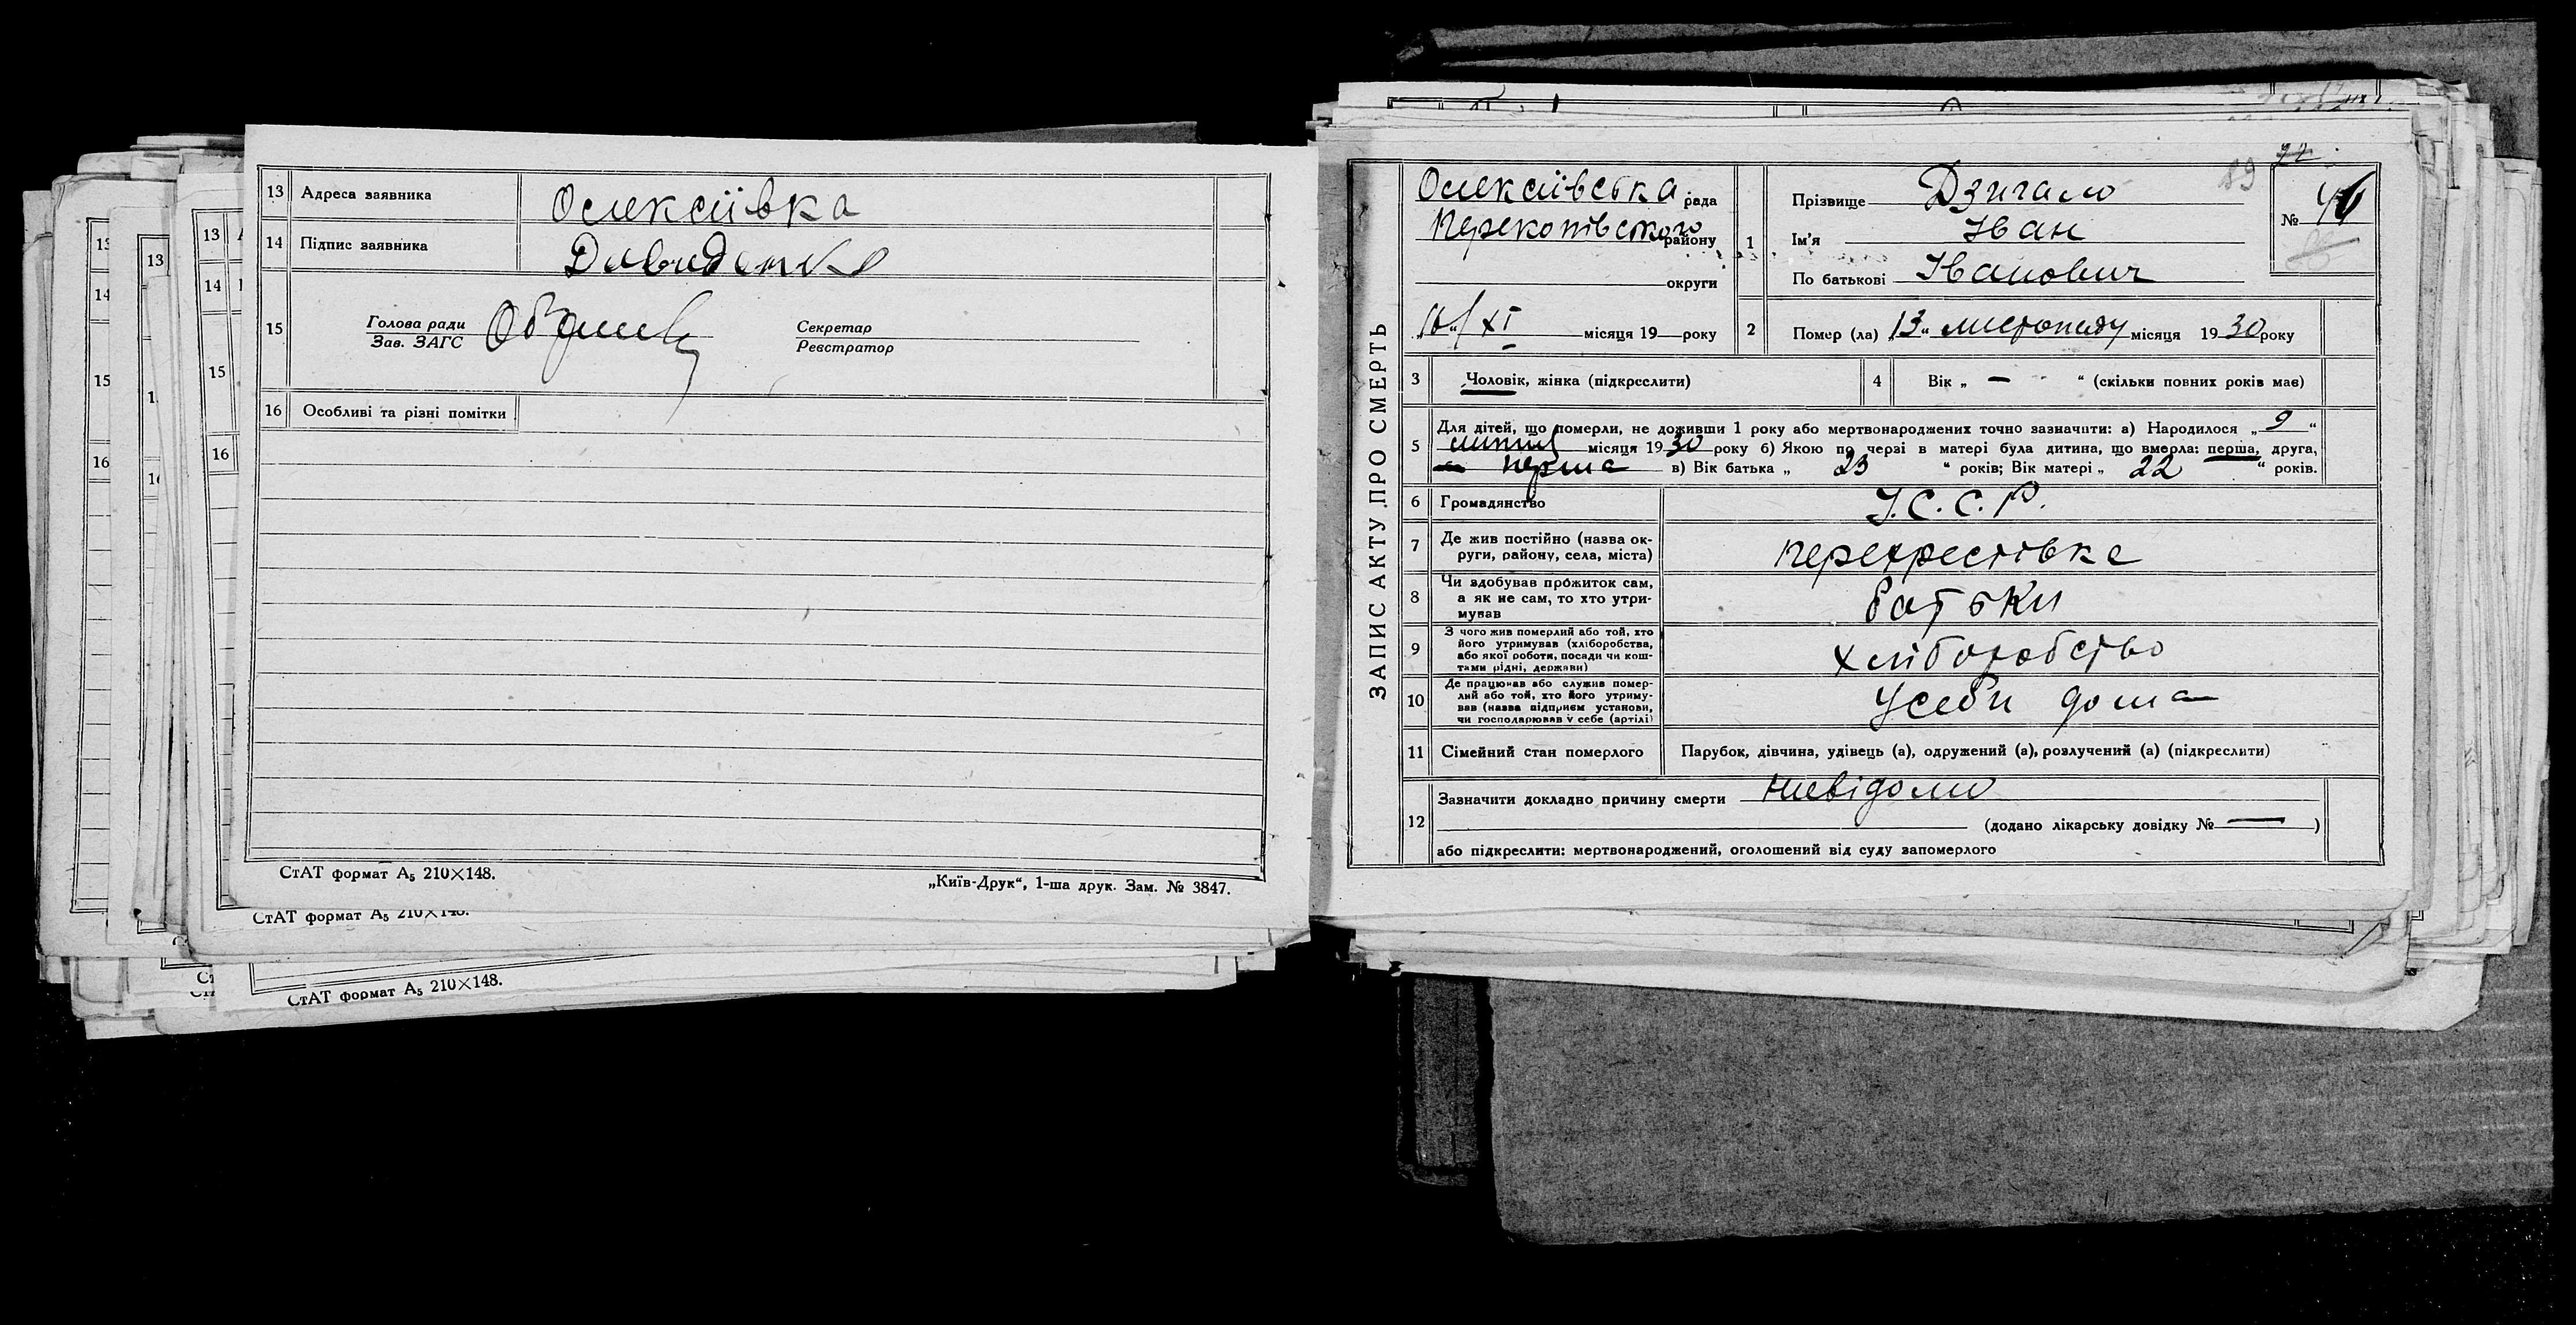 13 Адреса заявника Олексіївка
14 Підпис заявника Давиденко
15 Голова ради Секретар
Зав. ЗАГС Реєстратор
16 Особливі та різні помітки
СтАТ формат А5 210×148.
„Київ-Друк“, 1-ша друк. Зам. № 3847.
СтАТ формат А5 210×148.
СтАТ формат А5 210×148.
ЗАПИС АКТУ ПРО СМЕРТЬ
Олексіївська рада
Перекопівського району
округи
„16“/XI місяця 19 року
89
№
1 Прізвище Дзигало
Ім'я Іван
По батькові Іванович
2 Помер (ла) „13“ листопаду місяця 1930 року
3 Чоловік, жінка (підкреслити)
4 Вік „ — “ (скільки повних років мав)
5 Для дітей, що померли, не доживши 1 року або мертвонароджених точно зазначити: а) Народилося „9“
липня місяця 1930 року б) Якою по черзі в матері була дитина, що вмерла: перша, друга,
перша в) Вік батька „ 23 “ років; Вік матері „ 22 “ років.
6 Громадянство У.С.С.Р.
7 Де жив постійно (назва ок-
руги, району, села, міста) Перехрестівка
8 Чи здобував прожиток сам,
а як не сам, то хто утри-
мував батьки
9 З чого жив померлий або той, хто
його утримував (хліборобства,
або якої роботи, посади чи кош-
тами рідні, держави) хліборобство
10 Де працював або служив помер-
лий або той, хто його утриму-
вав (назва підприєм установи,
чи господарював у себе (артілі) Усеби дома
11 Сімейний стан померлого Парубок, дівчина, удівець (а), одружений (а), розлучений (а) (підкреслити)
12 Зазначити докладно причину смерти невідомо
(додано лікарську довідку № — )
або підкреслити: мертвонароджений, оголошений від суду запомерлого